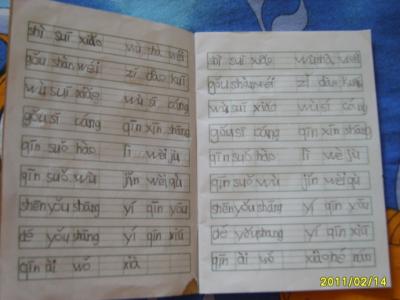 shì suī xiǎo wù shà wéi
gǒu shàn wéi zí dào kuī
wù suī xiǎo wù sī cáng
gǒu sī cáng qīn xīn shāng
qīn suǒ hào lì wèi jù
qīn suǒ wù jǐn wèi qù
shēn yǒu shāng yí qīn yōu
dé yǒu shāng yí qīn xiū
qīn ài wǒ xià
shì suī xiǎo wù shà wéi
gǒu shàn wéi zí dào kuī
wù suī xiǎo wù sī cáng
gǒu sī cáng qīn xīn shāng
qīn suǒ hào lì wèi jù
qīn suǒ wù jǐn wèi qù
shēn yǒu shāng yí qīn yōu
dé yǒu shāng yí qīn xiū
qīn ài wǒ xiào hé nán
2011/02/14